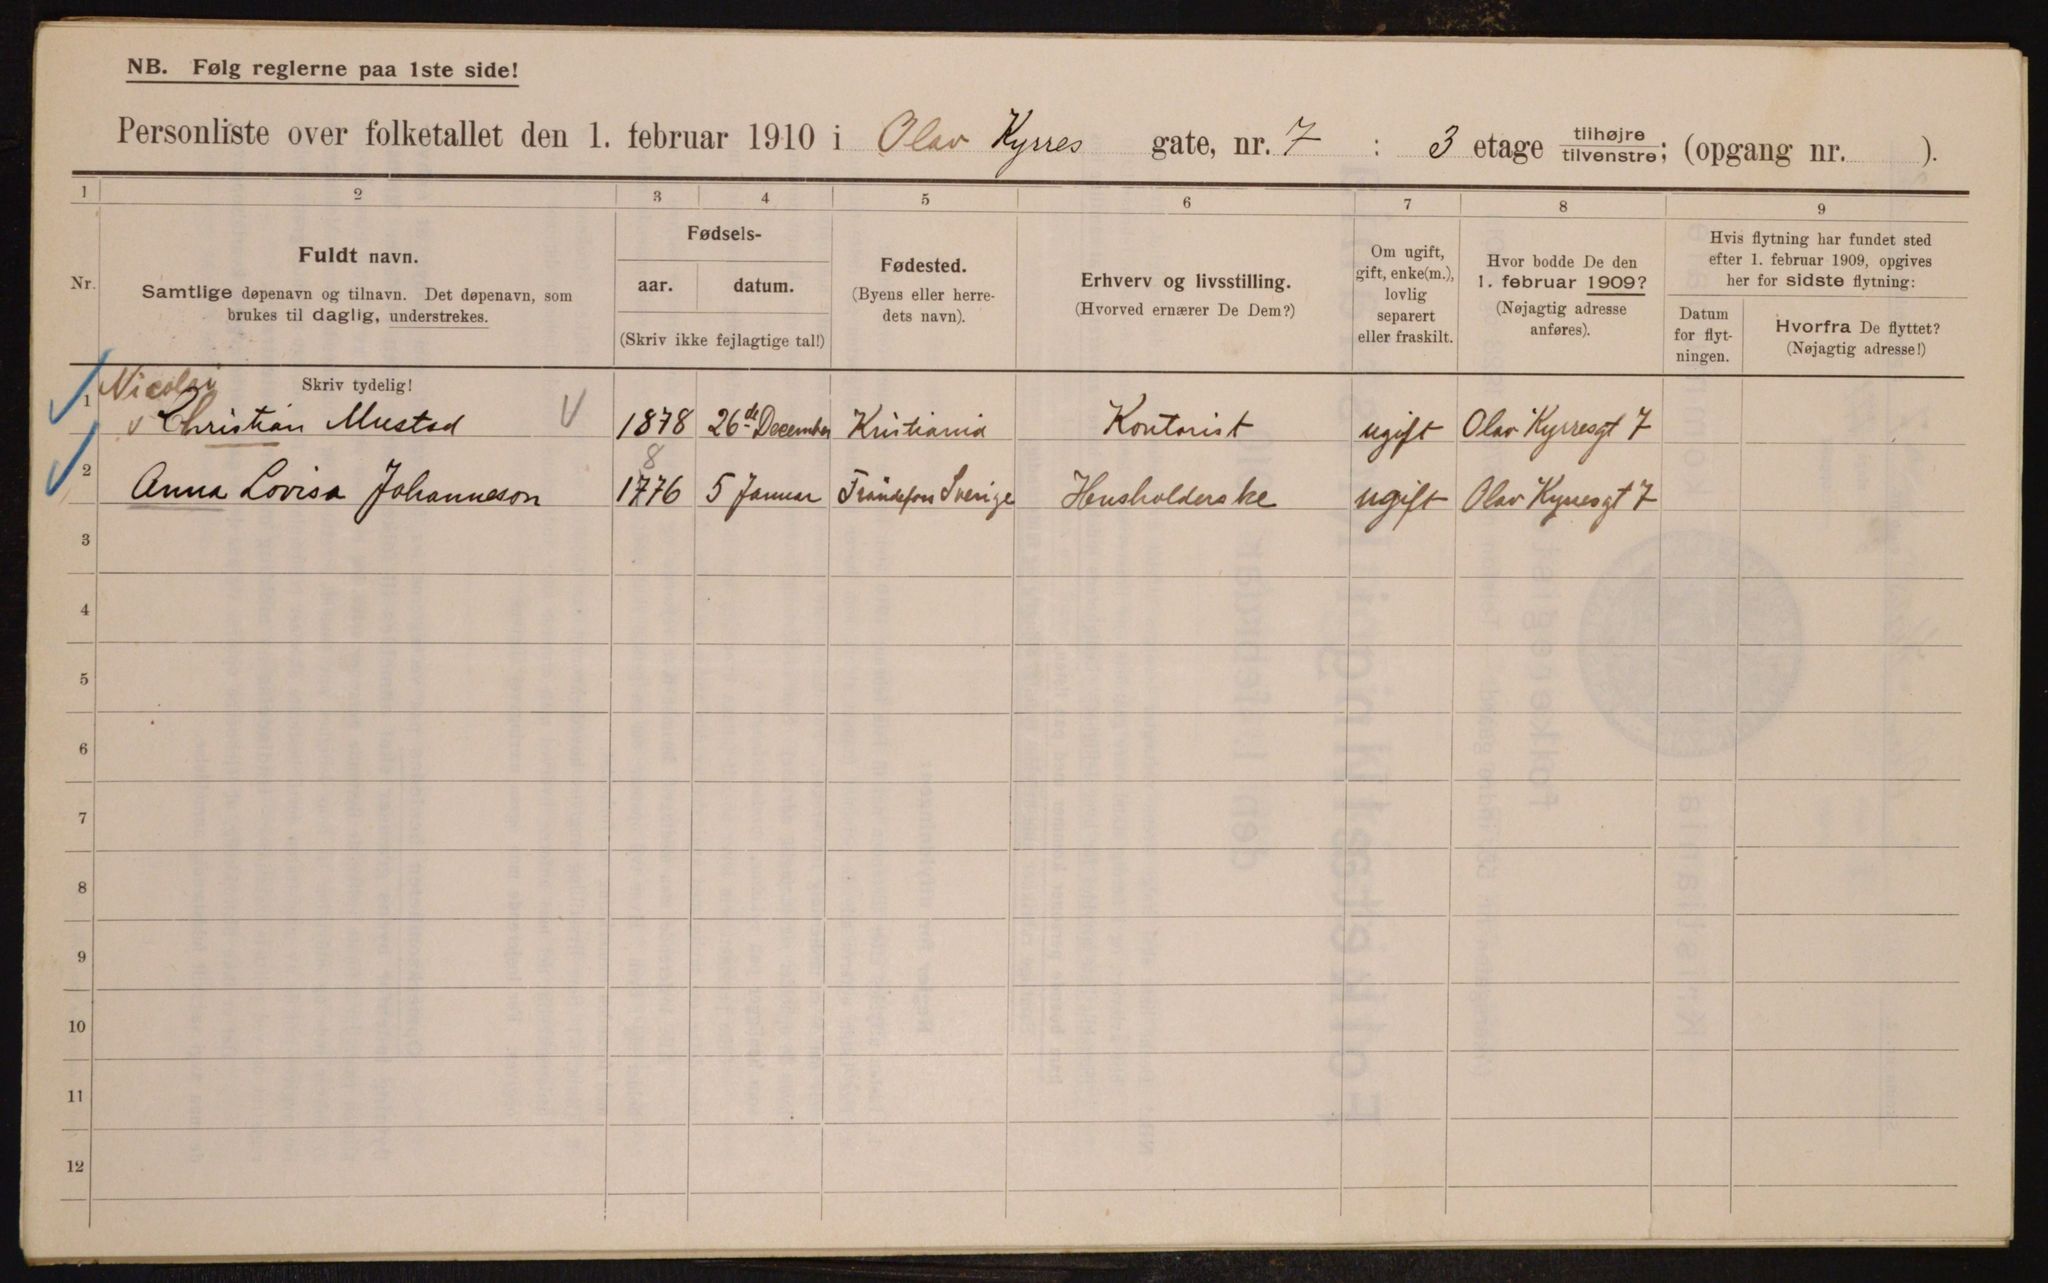 NB. Følg reglerne paa 1ste side!
Personliste over folketallet den 1. februar 1910 i Olav Kyrres gate, nr. 7 : 3 etage tilhøjre/tilvenstre; (opgang nr. ).
1 2 3 4 5 6 7 8 9
Nr.
Fuldt navn.
Samtlige døpenavn og tilnavn. Det døpenavn, som
brukes til daglig, understrekes.
Fødsels-
aar. datum.
(Skriv ikke fejlagtige tal!)
Fødested.
(Byens eller herre-
dets navn).
Erhverv og livsstilling.
(Hvorved ernærer De Dem?)
Om ugift,
gift, enke(m.),
lovlig
separert
eller fraskilt.
Hvor bodde De den
1. februar 1909?
(Nøjagtig adresse
anføres).
Hvis flytning har fundet sted
efter 1. februar 1909, opgives
her for sidste flytning:
Datum
for flyt-
ningen.
Hvorfra De flyttet?
(Nøjagtig adresse!)
Skriv tydelig!
Nicolai
1 Christian Mustad 1878 26de December Kristiania Kontorist ugift Olav Kyrresgt 7
8
2 Anna Lovisa Johanneson 1776 5 Januar Sverige Husholderske ugift Olav Kyrresgt 7
3
4
5
6
7
8
9
10
11
12